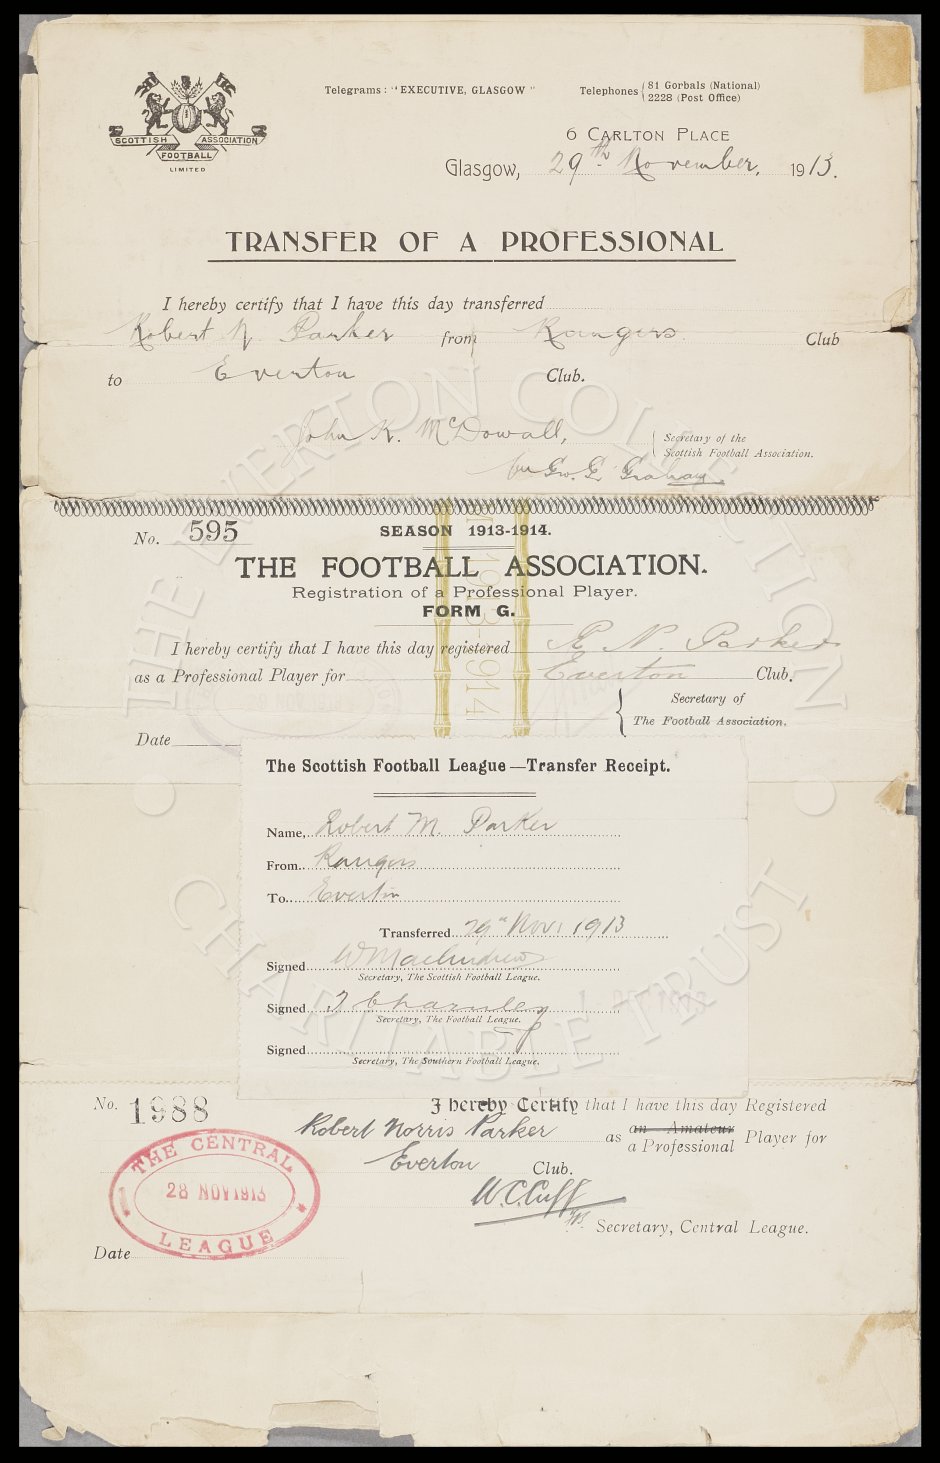 SCOTTISH FOOTBALL ASSOCIATION
LIMITED
Telegrams: "EXECUTIVE, GLASGOW"
Telephones { 81 Gorbals (National)
2228 (Post Office)
6 CARLTON PLACE
Glasgow, 29th November, 1913.
TRANSFER OF A PROFESSIONAL
I hereby certify that I have this day transferred
Robert N. Parker from Rangers Club
to Everton Club.
John K. McDowall, { Secretary of the
Scottish Football Association.
per Geo. G. Graham
No. 595
SEASON 1913-1914.
THE FOOTBALL ASSOCIATION.
Registration of a Professional Player.
FORM G.
I hereby certify that I have this day registered R. N. Parker
as a Professional Player for Everton Club.
{ Secretary of
The Football Association.
Date
The Scottish Football League—Transfer Receipt.
Name, Robert M. Parker
From Rangers
To Everton
Transferred 29" Nov 1913
Signed W MacAndrew
Secretary, The Scottish Football League.
Signed T Charnley
Secretary, The Football League.
Signed
Secretary, The Southern Football League.
No. 1988
I hereby Certify that I have this day Registered
Robert Norris Parker as an Amateur
a Professional Player for
Everton Club.
W. C. Cuff
Secretary, Central League.
THE CENTRAL LEAGUE
28 NOV 1913
Date
THE EVERTON COLLECTION
CHARITABLE TRUST